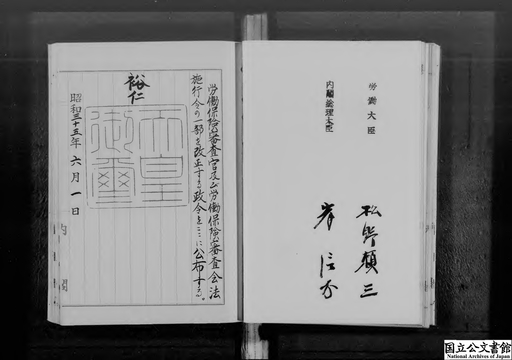 労働大臣
松野頼三
内閣総理大臣
岸信介
労働保険審査官及び労働保険審査会法
施行令の一部を改正する政令をここに公布する。
裕仁
天皇
御璽
昭和三十五年六月一日
国立公文書館
National Archives of Japan